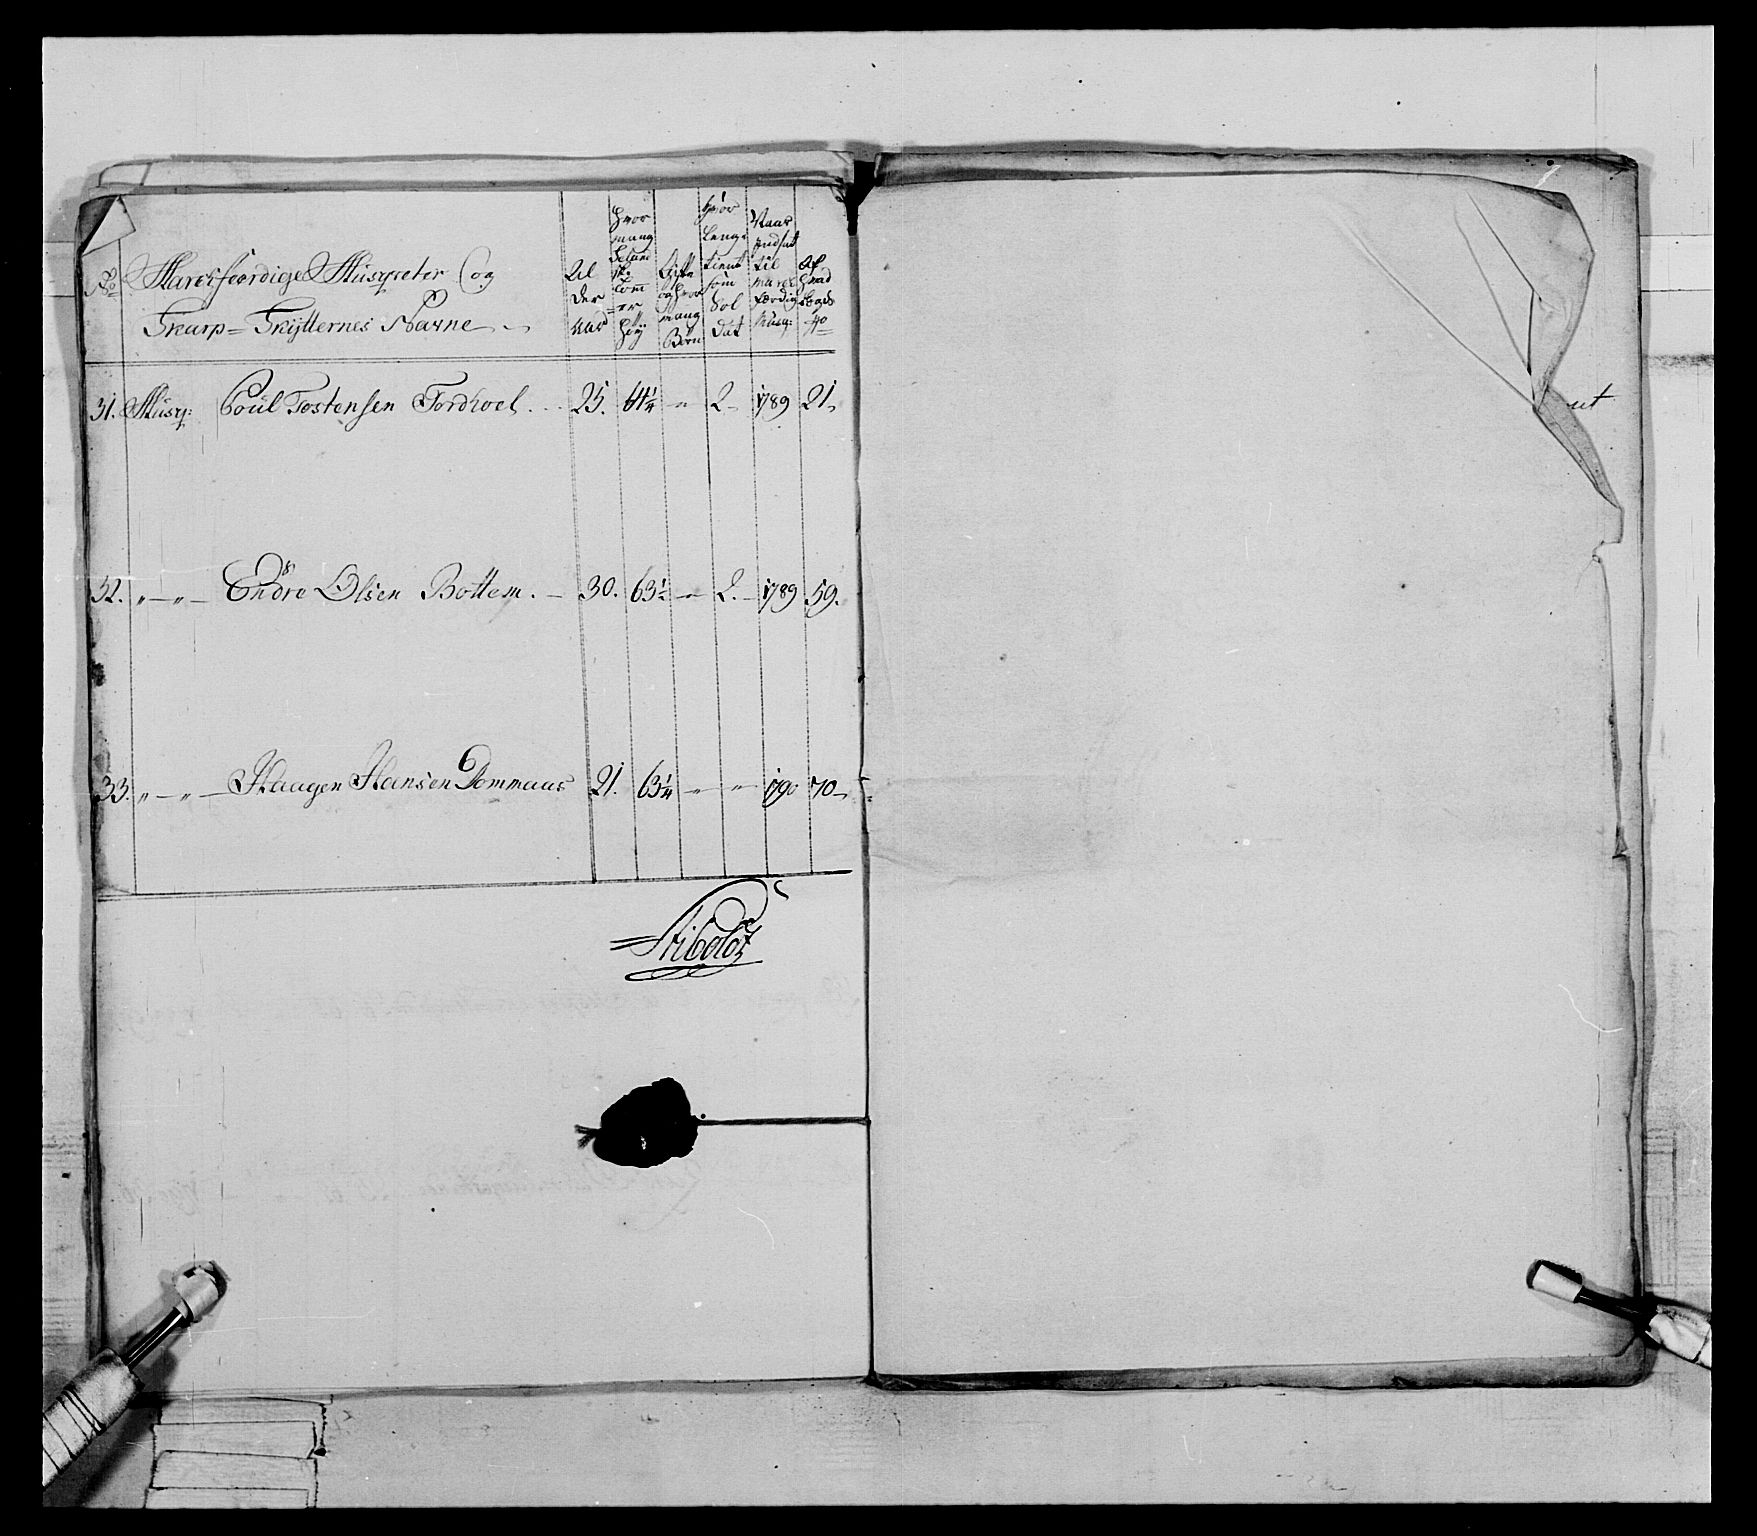 No Marchfærdige Musqveter Og
Skarp=Skytternes Navne
Al
der
Aar
Hvor
mang
Seland
ske
Tom
er
Høy
Gifte
og hvor
mang
Børn
hvor
Længe
tient
som
Sol
dat
Naar
indsat
til
march
færdig
Musq:
Af
hvad
Lægds
No
31. Musq: Poul Tostensen Tordhoel. 25. 64¼ " 2 1789 21
32. " " Endre Olsen Bottem. 30. 63½ " 2. 1789 59.
33. " " Haagen Hansen Dommaas 21. 63¼ " " 1790 70
Stibolt
ut